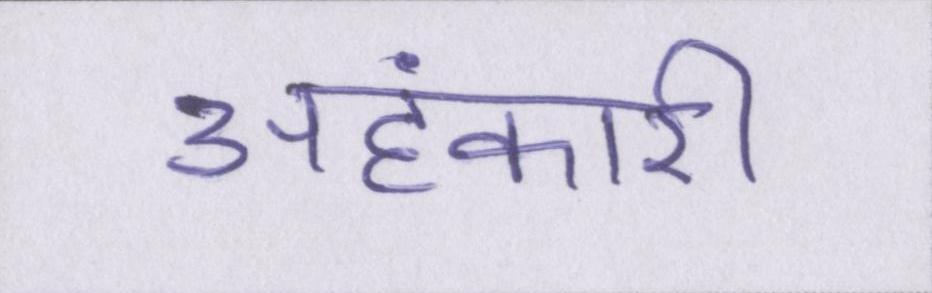 अहंकारी